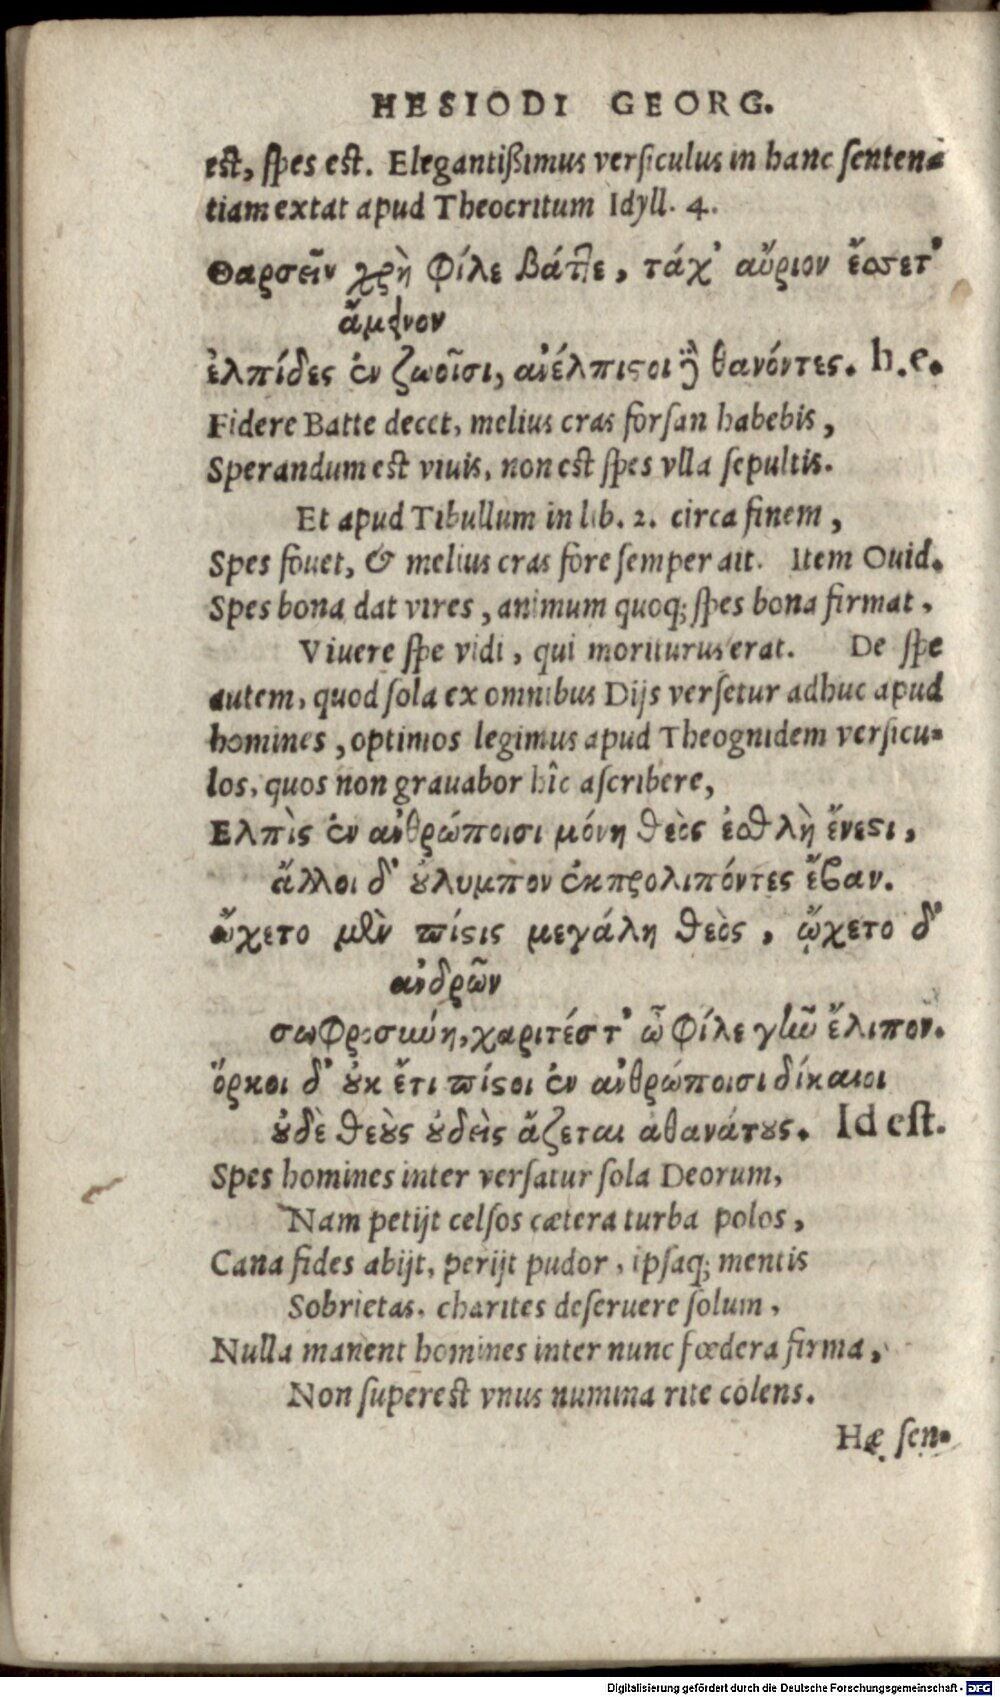 HESIODI GEORG.
est, spes est. Elegantißimus versiculus in hanc senten-
tiam extat apud Theocritum Idyll. 4.
Θαρσεῖν χρὴ φίλε βάττε, τάχ' αὔριον ἔσσετ'
ἄμεινον
ἐλπίδες ἐν ζωοῖσι, ἀνέλπιστοι δὲ θανόντες. h.e.
Fidere Batte decet, melius cras forsan habebis,
Sperandum est viuis, non est spes vlla sepultis.
Et apud Tibullum in lib. 2. circa finem,
Spes fouet, & melius cras fore semper ait. Item Ouid.
Spes bona dat vires, animum quoq; spes bona firmat,
Viuere spe vidi, qui moriturus erat. De spe
autem, quod sola ex omnibus Dijs versetur adhuc apud
homines, optimos legimus apud Theognidem versicu-
los, quos non grauabor hîc ascribere,
Ελπὶς ἐν ἀνθρώποισι μόνη θεὸς ἐσθλὴ ἔνεστι,
ἄλλοι δ' οὐλυμπον ἐκπρολιπόντες ἔβαν.
ᾤχετο μὲν πίστις μεγάλη θεὸς, ᾤχετο δ'
ἀνδρῶν
σωφροσύνη, χαριτές τ' ὦ φίλε γῆν ἔλιπον.
ὅρκοι δ' οὐκ ἔτι πίστοι ἐν ἀνθρώποισι δίκαιοι
οὐδὲ θεοὺς οὐδεὶς ἄζεται ἀθανάτους. Id est.
Spes homines inter versatur sola Deorum,
Nam petijt celsos cætera turba polos,
Cana fides abijt, perijt pudor, ipsaq; mentis
Sobrietas, charites deseruere solum,
Nulla manent homines inter nunc fœdera firma,
Non superest vnus numina rite colens.
Hæ sen-
Digitalisierung gefördert durch die Deutsche Forschungsgemeinschaft - DFG